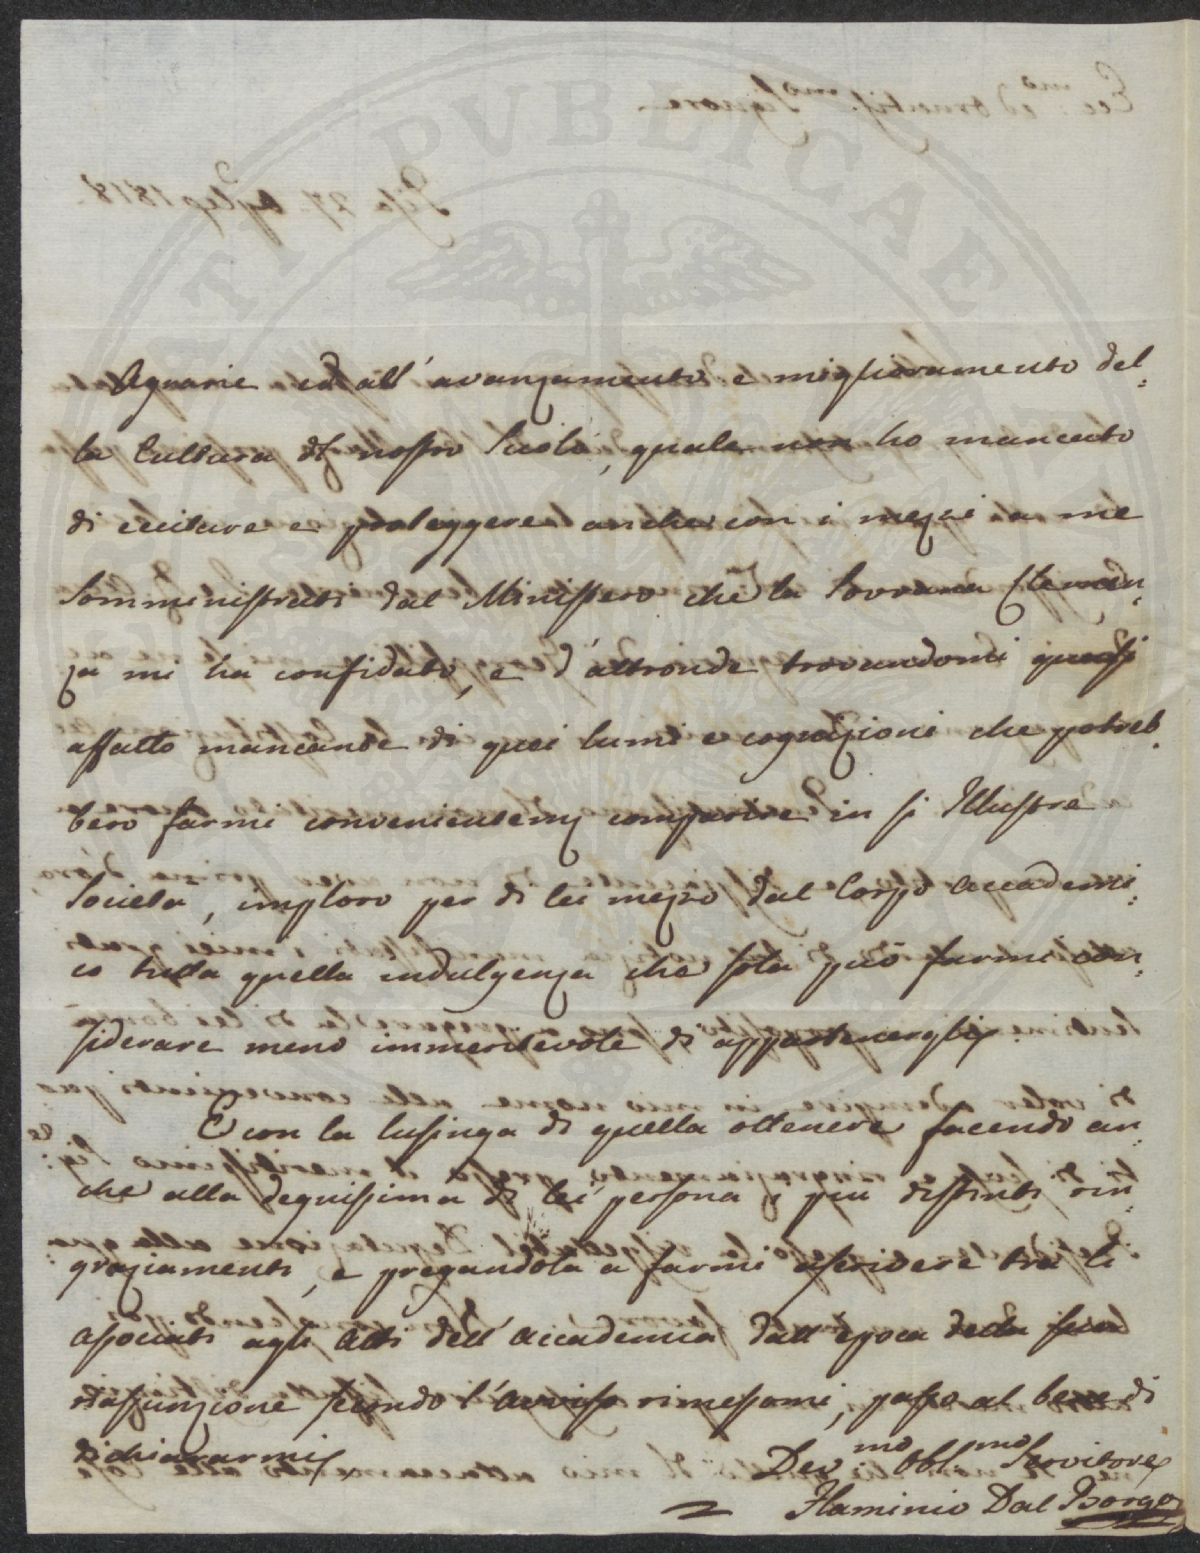 Agrarie ed all' avanzamento e miglioramento del=
la Cultura del nostro Suolo, quale non ho mancato
di eccitare e proteggere anche con i mezzi a me
somministrati dal Ministero che la Sovrana Clemen=
za mi ha confidato, e d'altronde trovandomi quasi
affatto mancante di quei lumi e cognizioni che potreb=
bero farmi convenientem comparire in sì Illustre
Società, imploro per di lei mezzo dal Corpo Accademi=
co tutta quella indulgenza che sola può farmi con=
siderare meno immeritevole di appartenergli.
E con la lusinga di quella ottenere facendo an=
che alla degnissima di lei persona i piu distinti rin=
graziamenti, e pregandola a farmi ascrivere tra li
associati agli Atti dell' Accademia dall' epoca della sua
riassunzione secondo l'avviso rimessomi, passo al bene di
dichiararmi
Dev.mo Obbl.mo Servitore
Flaminio Dal Borgo